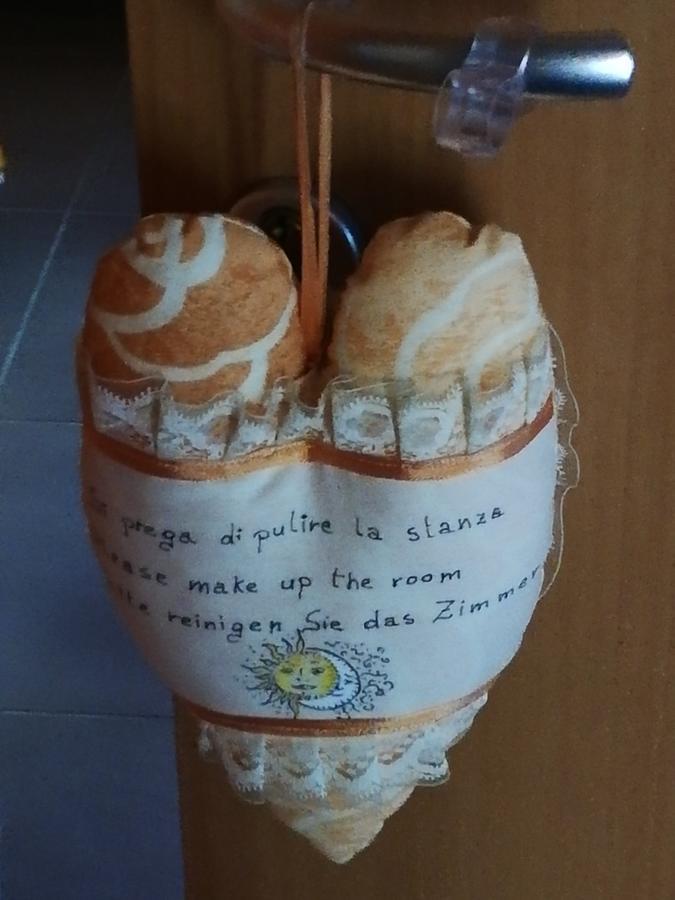 Si prega di pulire la stanza
Please make up the room
Bitte reinigen Sie das Zimmer